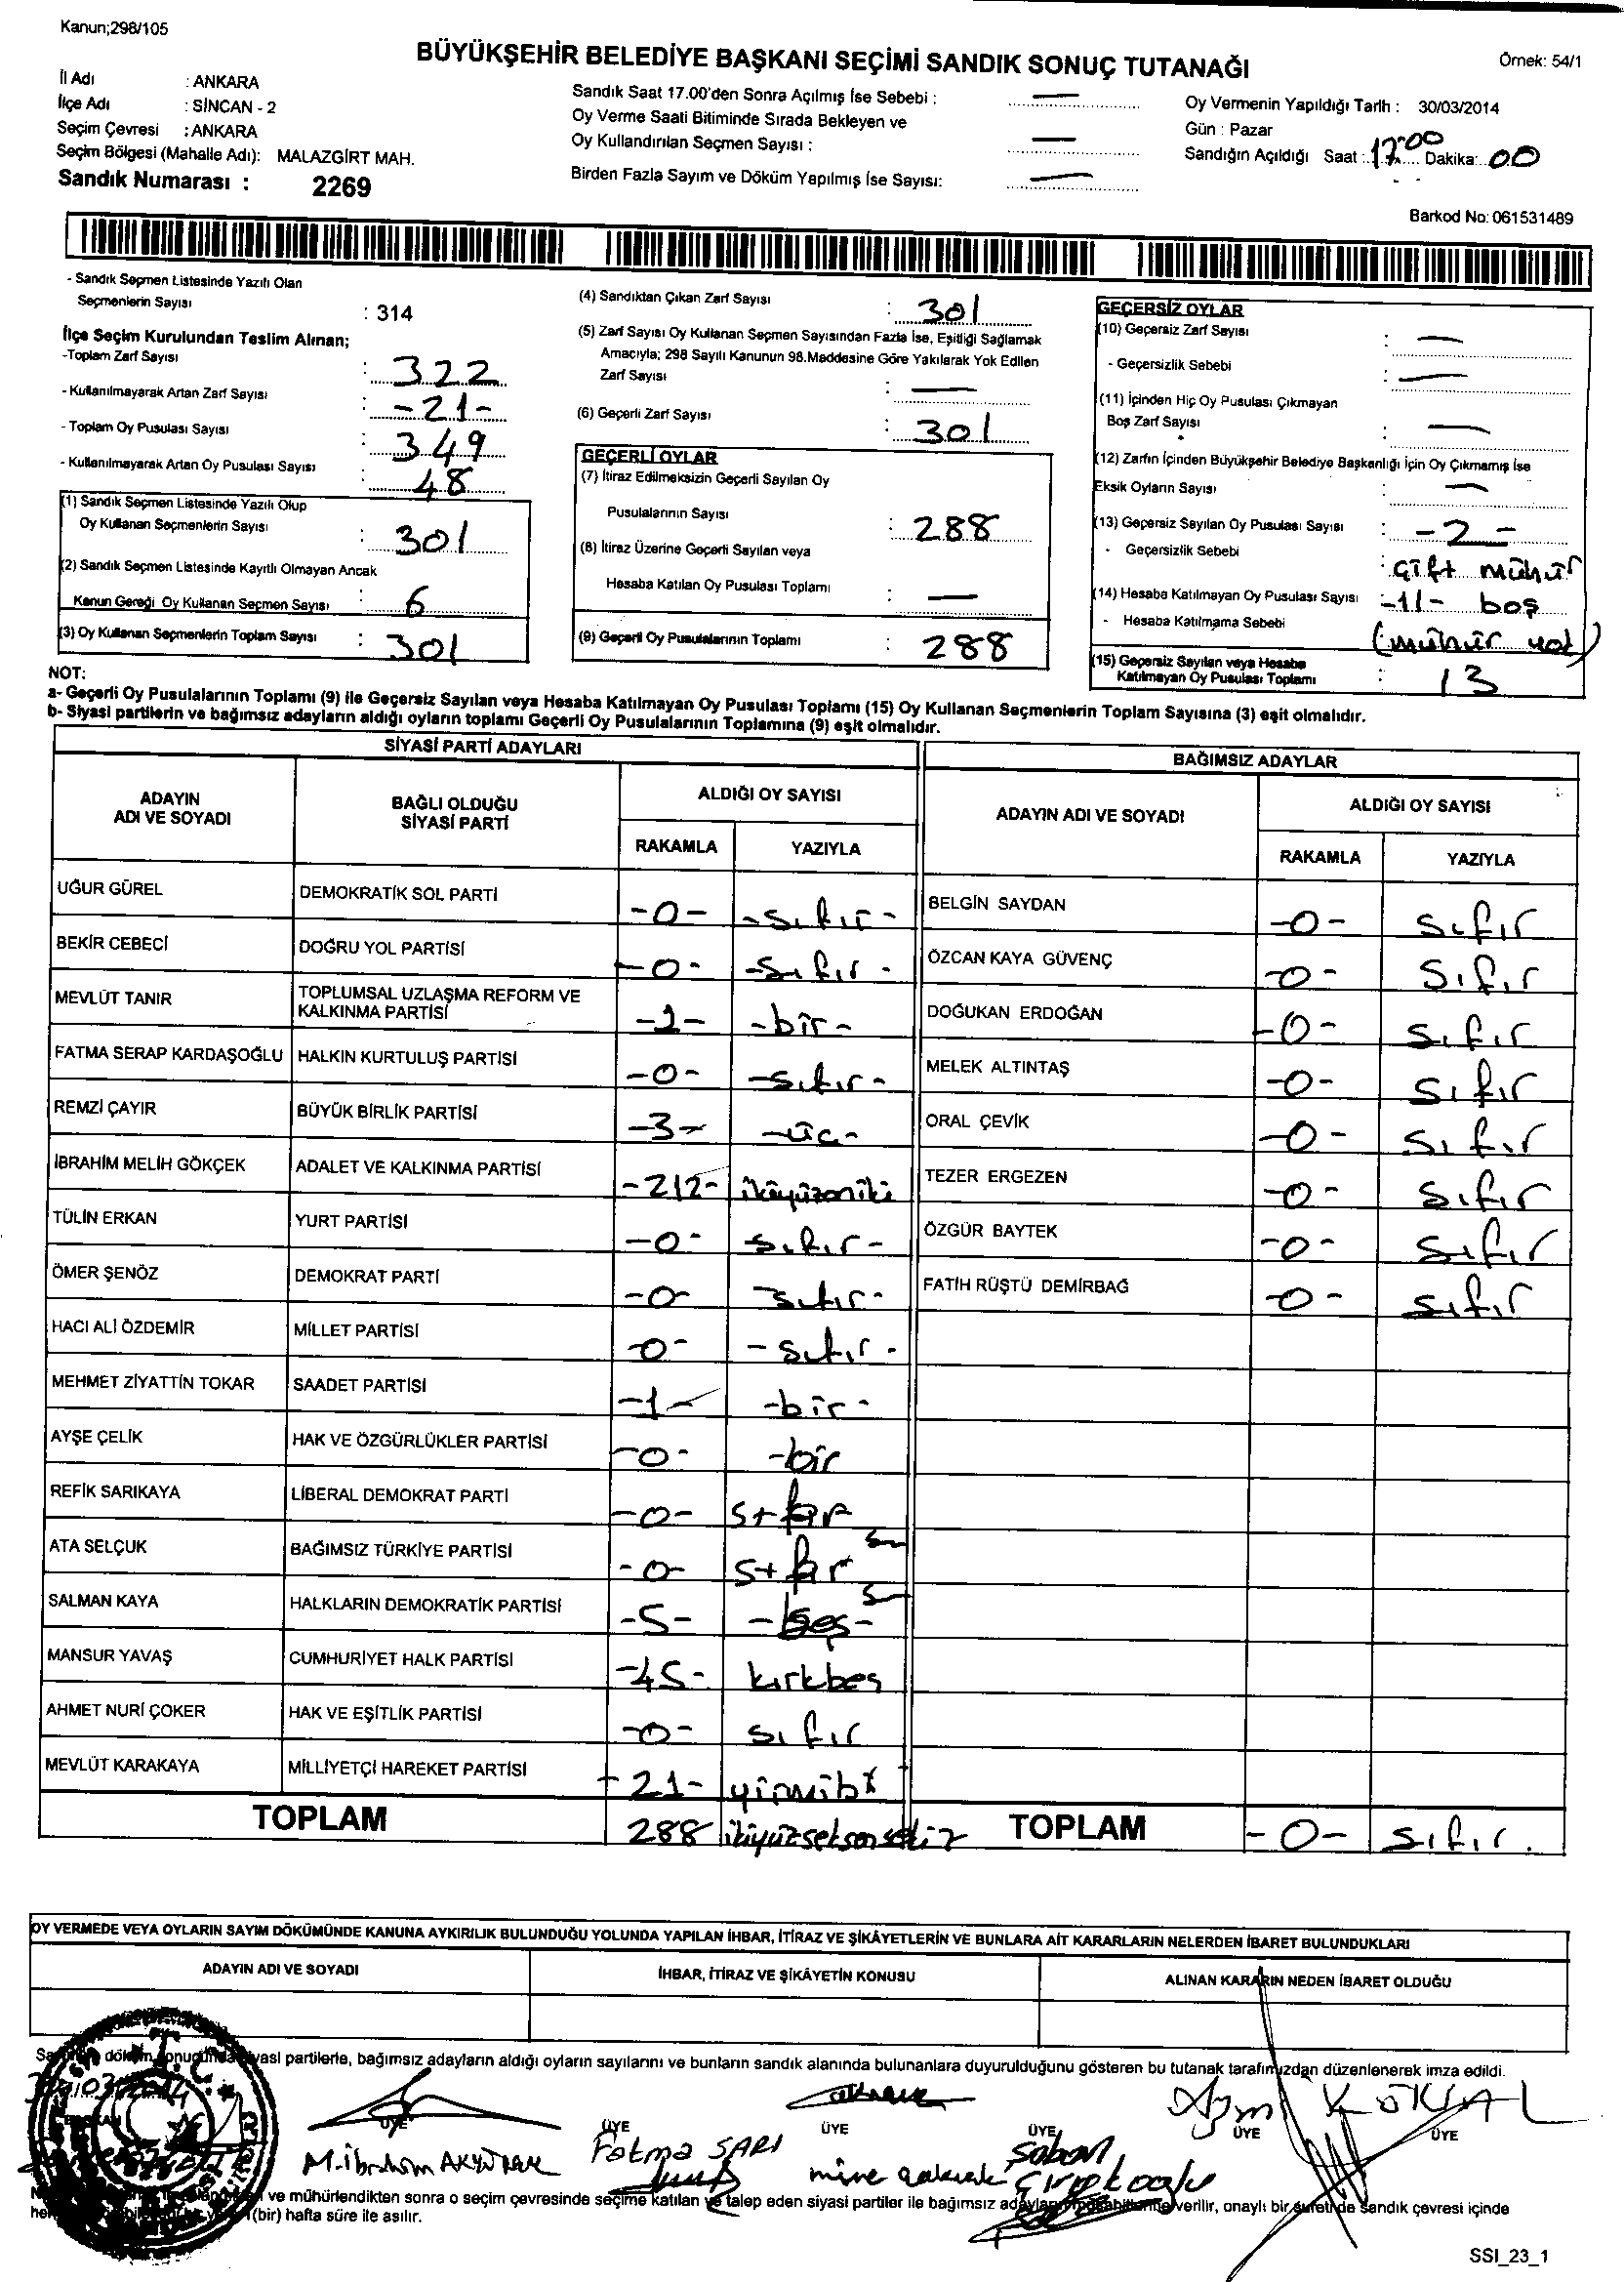 Kanun;298/105
BÜYÜKŞEHİR BELEDİYE BAŞKANI SEÇİMİ SANDIK SONUÇ TUTANAĞI
Örnek: 54/1
İl Adı : ANKARA
İlçe Adı : SİNCAN - 2
Seçim Çevresi : ANKARA
Seçim Bölgesi (Mahalle Adı): MALAZGİRT MAH.
Sandık Numarası : 2269
Sandık Saat 17.00'den Sonra Açılmış İse Sebebi : —
Oy Verme Saati Bitiminde Sırada Bekleyen ve
Oy Kullandırılan Seçmen Sayısı : —
Birden Fazla Sayım ve Döküm Yapılmış İse Sayısı: —
Oy Vermenin Yapıldığı Tarih : 30/03/2014
Gün : Pazar
Sandığın Açıldığı Saat : 17:00 Dakika: 00
Barkod No: 061531489
- Sandık Seçmen Listesinde Yazılı Olan
Seçmenlerin Sayısı : 314
İlçe Seçim Kurulundan Teslim Alınan;
-Toplam Zarf Sayısı : 322
- Kullanılmayarak Artan Zarf Sayısı : -21-
- Toplam Oy Pusulası Sayısı : 349
- Kullanılmayarak Artan Oy Pusulası Sayısı : 48
(1) Sandık Seçmen Listesinde Yazılı Olup
Oy Kullanan Seçmenlerin Sayısı : 301
(2) Sandık Seçmen Listesinde Kayıtlı Olmayan Ancak
Kanun Gereği Oy Kullanan Seçmen Sayısı : 6
(3) Oy Kullanan Seçmenlerin Toplam Sayısı : 301
(4) Sandıktan Çıkan Zarf Sayısı : 301
(5) Zarf Sayısı Oy Kullanan Seçmen Sayısından Fazla İse, Eşitliği Sağlamak
Amacıyla; 298 Sayılı Kanunun 98.Maddesine Göre Yakılarak Yok Edilen
Zarf Sayısı : —
(6) Geçerli Zarf Sayısı : 301
GEÇERLİ OYLAR
(7) İtiraz Edilmeksizin Geçerli Sayılan Oy
Pusulalarının Sayısı : 288
(8) İtiraz Üzerine Geçerli Sayılan veya
Hesaba Katılan Oy Pusulası Toplamı : —
(9) Geçerli Oy Pusulalarının Toplamı : 288
GEÇERSİZ OYLAR
(10) Geçersiz Zarf Sayısı : —
- Geçersizlik Sebebi : —
(11) İçinden Hiç Oy Pusulası Çıkmayan
Boş Zarf Sayısı : —
(12) Zarfın İçinden Büyükşehir Belediye Başkanlığı İçin Oy Çıkmamış İse
Eksik Oyların Sayısı : —
(13) Geçersiz Sayılan Oy Pusulası Sayısı : -2-
- Geçersizlik Sebebi : çift mühür
(14) Hesaba Katılmayan Oy Pusulası Sayısı : -11- boş
- Hesaba Katılmama Sebebi (mühür yok)
(15) Geçersiz Sayılan veya Hesaba
Katılmayan Oy Pusulası Toplamı : 13
NOT:
a- Geçerli Oy Pusulalarının Toplamı (9) ile Geçersiz Sayılan veya Hesaba Katılmayan Oy Pusulası Toplamı (15) Oy Kullanan Seçmenlerin Toplam Sayısına (3) eşit olmalıdır.
b- Siyasi partilerin ve bağımsız adayların aldığı oyların toplamı Geçerli Oy Pusulalarının Toplamına (9) eşit olmalıdır.
SİYASİ PARTİ ADAYLARI
ADAYIN ADI VE SOYADI BAĞLI OLDUĞU SİYASİ PARTİ ALDIĞI OY SAYISI
RAKAMLA YAZIYLA
UĞUR GÜREL DEMOKRATİK SOL PARTİ -0- -sıfır-
BEKİR CEBECİ DOĞRU YOL PARTİSİ -0- -sıfır-
MEVLÜT TANIR TOPLUMSAL UZLAŞMA REFORM VE KALKINMA PARTİSİ -1- -bir-
FATMA SERAP KARDAŞOĞLU HALKIN KURTULUŞ PARTİSİ -0- -sıfır-
REMZİ ÇAYIR BÜYÜK BİRLİK PARTİSİ -3- -üç-
İBRAHİM MELİH GÖKÇEK ADALET VE KALKINMA PARTİSİ -212- ikiyüzoniki
TÜLİN ERKAN YURT PARTİSİ -0- sıfır-
ÖMER ŞENÖZ DEMOKRAT PARTİ -0- sıfır-
HACI ALİ ÖZDEMİR MİLLET PARTİSİ -0- -sıfır-
MEHMET ZİYATTİN TOKAR SAADET PARTİSİ -1- -bir-
AYŞE ÇELİK HAK VE ÖZGÜRLÜKLER PARTİSİ -0- -bir
REFİK SARIKAYA LİBERAL DEMOKRAT PARTİ -0- sıfır
ATA SELÇUK BAĞIMSIZ TÜRKİYE PARTİSİ -0- sıfır
SALMAN KAYA HALKLARIN DEMOKRATİK PARTİSİ -5- -beş-
MANSUR YAVAŞ CUMHURİYET HALK PARTİSİ -45- kırkbeş
AHMET NURİ ÇOKER HAK VE EŞİTLİK PARTİSİ -0- sıfır
MEVLÜT KARAKAYA MİLLİYETÇİ HAREKET PARTİSİ -21- yirmibir
TOPLAM 288 ikiyüzseksensekiz
BAĞIMSIZ ADAYLAR
ADAYIN ADI VE SOYADI ALDIĞI OY SAYISI
RAKAMLA YAZIYLA
BELGİN SAYDAN -0- sıfır
ÖZCAN KAYA GÜVENÇ -0- sıfır
DOĞUKAN ERDOĞAN -0- sıfır
MELEK ALTINTAŞ -0- sıfır
ORAL ÇEVİK -0- sıfır
TEZER ERGEZEN -0- sıfır
ÖZGÜR BAYTEK -0- sıfır
FATİH RÜŞTÜ DEMİRBAĞ -0- sıfır
TOPLAM -0- sıfır.
OY VERMEDE VEYA OYLARIN SAYIM DÖKÜMÜNDE KANUNA AYKIRILIK BULUNDUĞU YOLUNDA YAPILAN İHBAR, İTİRAZ VE ŞİKÂYETLERİN VE BUNLARA AİT KARARLARIN NELERDEN İBARET BULUNDUKLARI
ADAYIN ADI VE SOYADI İHBAR, İTİRAZ VE ŞİKÂYETİN KONUSU ALINAN KARARIN NEDEN İBARET OLDUĞU
partilerle, bağımsız adayların aldığı oyların sayılarını ve bunların sandık alanında bulunanlara duyurulduğunu gösteren bu tutanak tarafımızdan düzenlenerek imza edildi.
ÜYE ÜYE ÜYE ÜYE ÜYE ÜYE
M.İbrahim Fatma SARI mine Şaban KÖKSAL
ve mühürlendikten sonra o seçim çevresinde seçime katılan ve talep eden siyasi partiler ile bağımsız verilir, onaylı bir sureti de sandık çevresi içinde
(bir) hafta süre ile asılır.
SSI_23_1